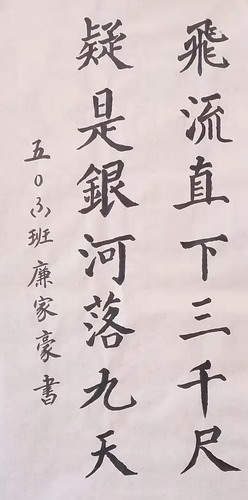 飛流直下三千尺
疑是銀河落九天
五〇三班廉家豪書